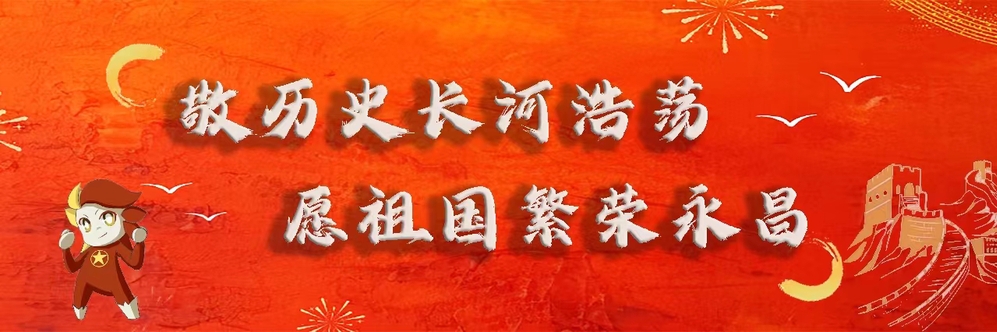 敬历史长河浩荡
愿祖国繁荣永昌